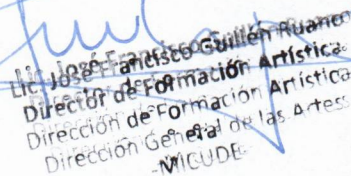 Lic. José Francisco Guillén Ruano
Director de Formación Artística
Dirección de Formación Artística
Dirección General de las Artes
-MICUDE-